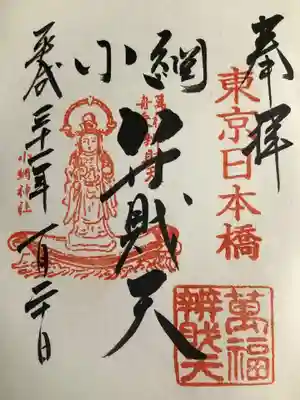 奉拝
東京日本橋
小網
弁財天
小網神社
平成三十一年一月二十日
萬福
辨財天